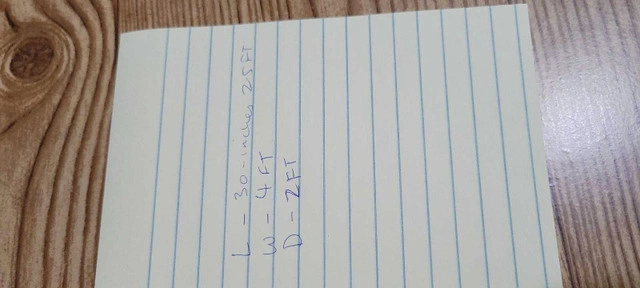 L - 30-inches 25FT
W - 4 FT
D - 2FT